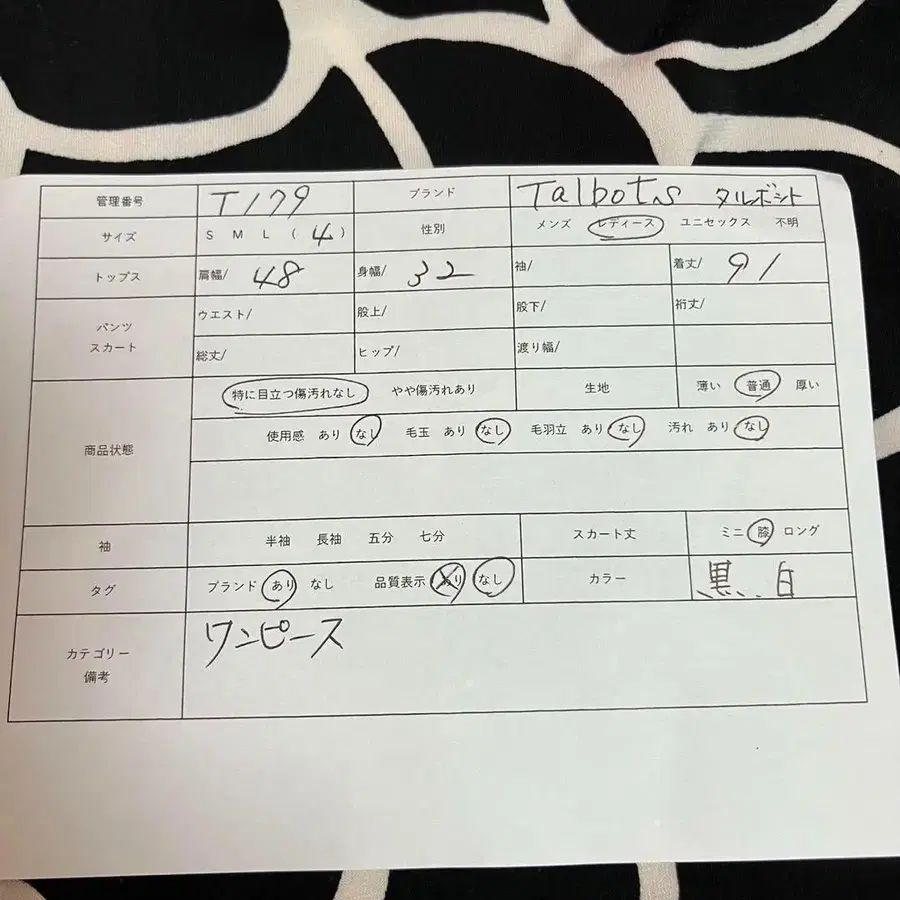 管理番号 T179 ブランド Talbots タルボット
サイズ S M L ( 4 ) 性別 メンズ レディース ユニセックス 不明
トップス 肩幅/ 48 身幅/ 32 袖/ 着丈/ 91
パンツ スカート ウエスト/ 股上/ 股下/ 裄丈/
総丈/ ヒップ/ 渡り幅/
商品状態 特に目立つ傷汚れなし やや傷汚れあり 生地 薄い 普通 厚い
使用感 あり なし 毛玉 あり なし 毛羽立 あり なし 汚れ あり なし
袖 半袖 長袖 五分 七分 スカート丈 ミニ 膝 ロング
タグ ブランド あり なし 品質表示 あり なし カラー 黒、白
カテゴリー ワンピース
備考